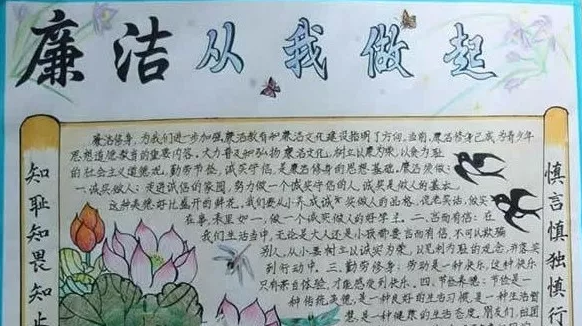 廉洁从我做起
知耻知畏知止
廉洁修身,为我们进一步加强廉洁教育和廉洁文化建设指明了方向。当前,廉洁修身已成为青少年
思想道德教育的重要内容。大力普及和弘扬廉洁文化,树立以廉为荣,以贪为耻
的社会主义道德观,勤劳节俭,诚实守信,是廉洁修身的思想基础。廉洁须做:
一、诚实做人:走进诚信的家园,努力做一个诚实守信的人,诚实是做人的基本。
这种美德好比盛开的鲜花,我们要从小养成诚实做人的品格。说老实话,做实
在事,表里如一,做一个诚实做人的好学生。二、言而有信:在
我们生活当中,无论是大人还是小孩都要言而有信,不可以欺骗
别人,从小要树立以诚实为荣,以见利为耻的观念,并落实
到行动中。三、勤劳修身:劳动是一种快乐,这种快乐
只有亲自体验,才能感受到快乐。四、节俭美德:节俭是一
种传统美德,是一种良好的生活习惯,是一种生活智
慧,是一种健康的生活态度。朋友们,祖国
慎言慎独慎行